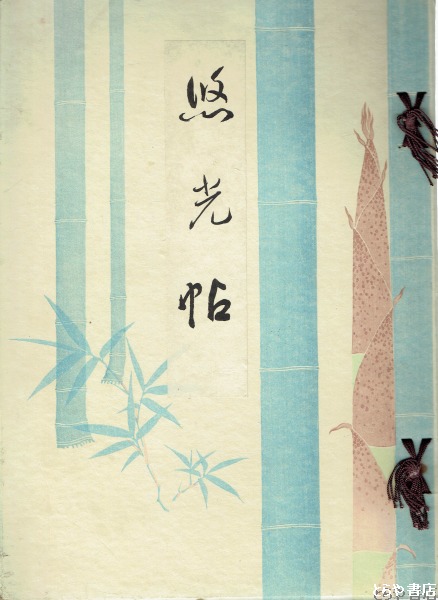 悠光帖
とらや書店